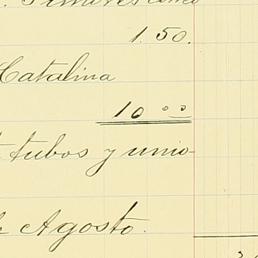 1.50.
Catalina
10 00
tubos y unio-
Agosto.